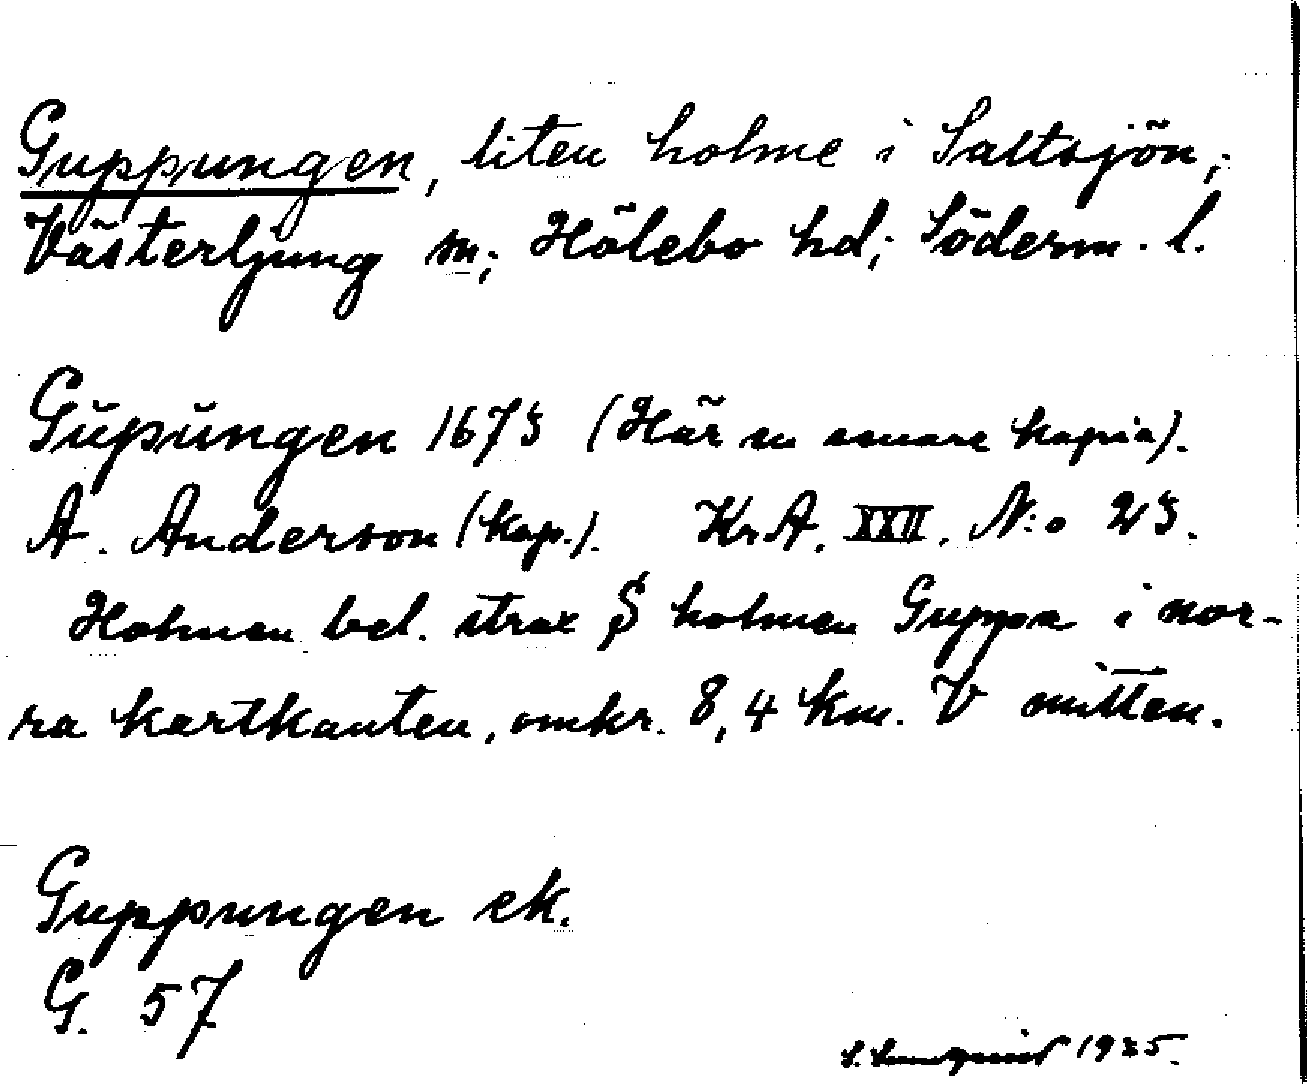 Guppungen, liten holme i Saltsjön,
Västerljung sn; Hölebo hd; Söderm. l.
Gŭpŭngen 1673 (Här en senare kopia).
A. Anderson (kop.). Kr A. XXII. N:o 23.
Holmen bel. strax S holmen Guppa i nor-
ra kartkanten, omkr. 8,4 km. V mitten.
Guppungen ek.
G. 57
1925.